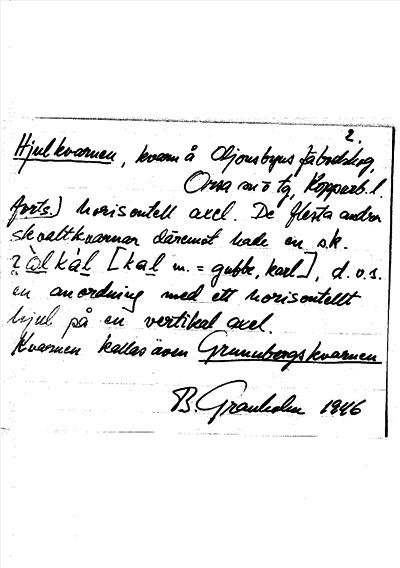 2.
Hjulkvarnen, kvarn å Oljonsbyns fäbodskog,
Orsa sn o tg, Kopparb. l.
forts.) horisontell axel. De flesta andra
skvaltkvarnar däremot hade en s.k.
kàl [kal m. = gubbe, karl], d.v.s.
en anordning med ett horisontellt
hjul på en vertikal axel.
Kvarnen kallas även Grunnbergskvarnen
B. Granholm 1946